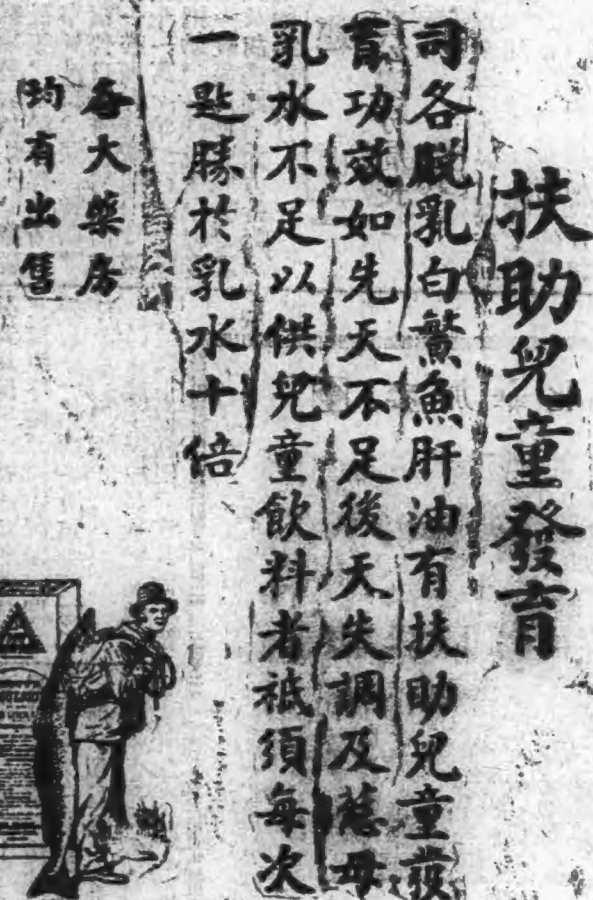 扶助兒童發育
司各脫乳白鰵魚肝油有扶助兒童發
育功效如先天不足後天失調及慈母
乳水不足以供兒童飲料者祗須每次
一匙勝於乳水十倍
各大藥房
均有出售